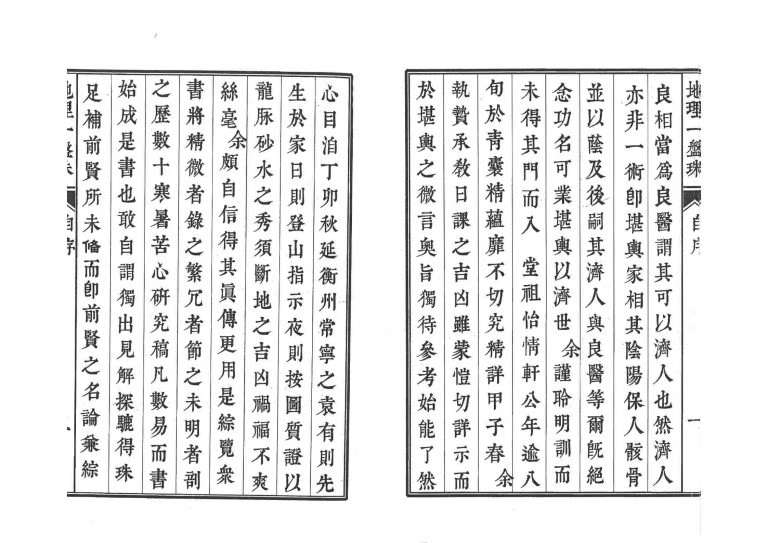 地理一盤珠 自序 一
良相當爲良醫謂其可以濟人也然濟人
亦非一術卽堪輿家相其陰陽保人骸骨
並以蔭及後嗣其濟人與良醫等爾旣絕
念功名可業堪輿以濟世余謹聆明訓而
未得其門而入 堂祖怡情軒公年逾八
旬於靑囊精蘊靡不切究精詳甲子春余
執贄承敎日課之吉凶雖蒙愷切詳示而
於堪輿之微言奧旨獨待參考始能了然
心目洎丁卯秋延衡州常寧之袁有則先
生於家日則登山指示夜則按圖質證以
龍脉砂水之秀須斷地之吉凶禍福不爽
絲毫余頗自信得其眞傳更用是綜覽衆
書將精微者錄之繁冗者節之未明者剖
之歷數十寒暑苦心硏究稿凡數易而書
始成是書也敢自謂獨出見解探驪得珠
足補前賢所未俻而卽前賢之名論兼綜
地理一盤珠 自序